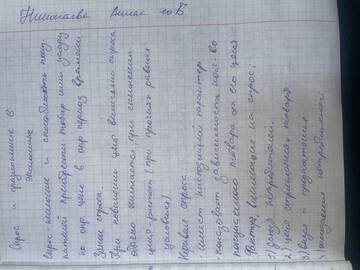 Николаева 10 Б
Спрос и предложение в
экономике
Спрос - желание и способность поку-
пателей приобрести товар или услугу
по опр. цене в опр период времени
Закон спроса:
При повышении цены величина спроса
обычно снижается, при снижении
цены растет (при прочих равных
условиях)
Кривая спроса:
имеет нисходящий характер
показывает зависимость кол-во
товара от его цены
Факторы, влияющие на спрос:
1) доход потребителей
2) цена товаров
3) вкусы и предпочтения
4) потребителей